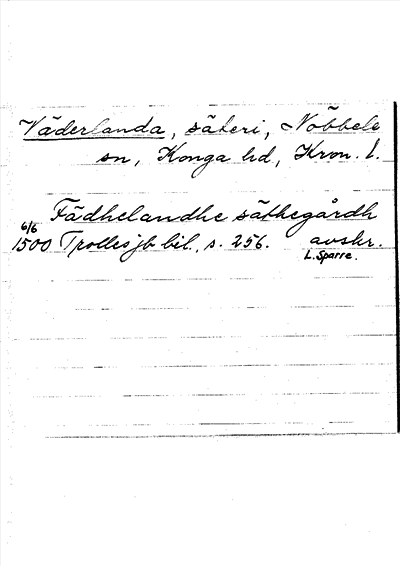 Väderlanda, säteri, Nöbbele
sn, Konga hd, Kron. l.
Fädhelandhe säthegårdh
6/6
1500 Trolles jb bil., s. 256. avskr.
L. Sparre.